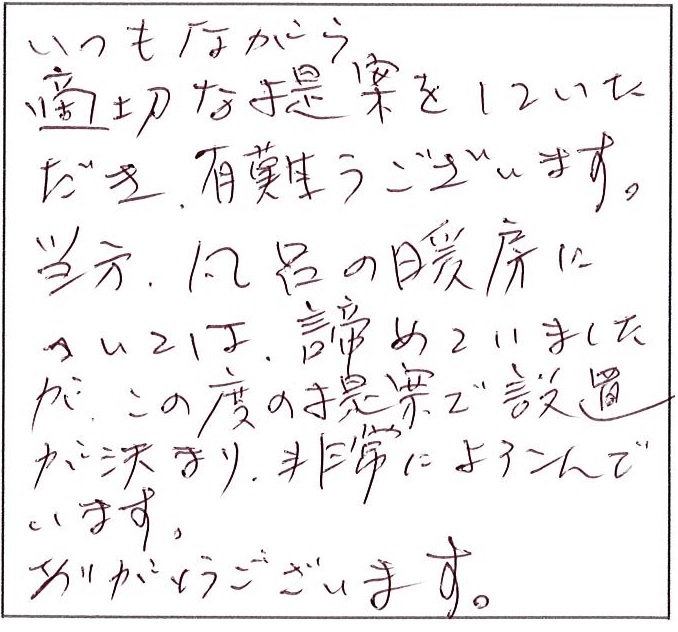 いつもながら
適切な提案をしていた
だき、有難うございます。
当方、風呂の暖房に
ついては、諦めていました
が、この度の提案で設置
が決まり、非常によろこんで
います。
ありがとうございます。